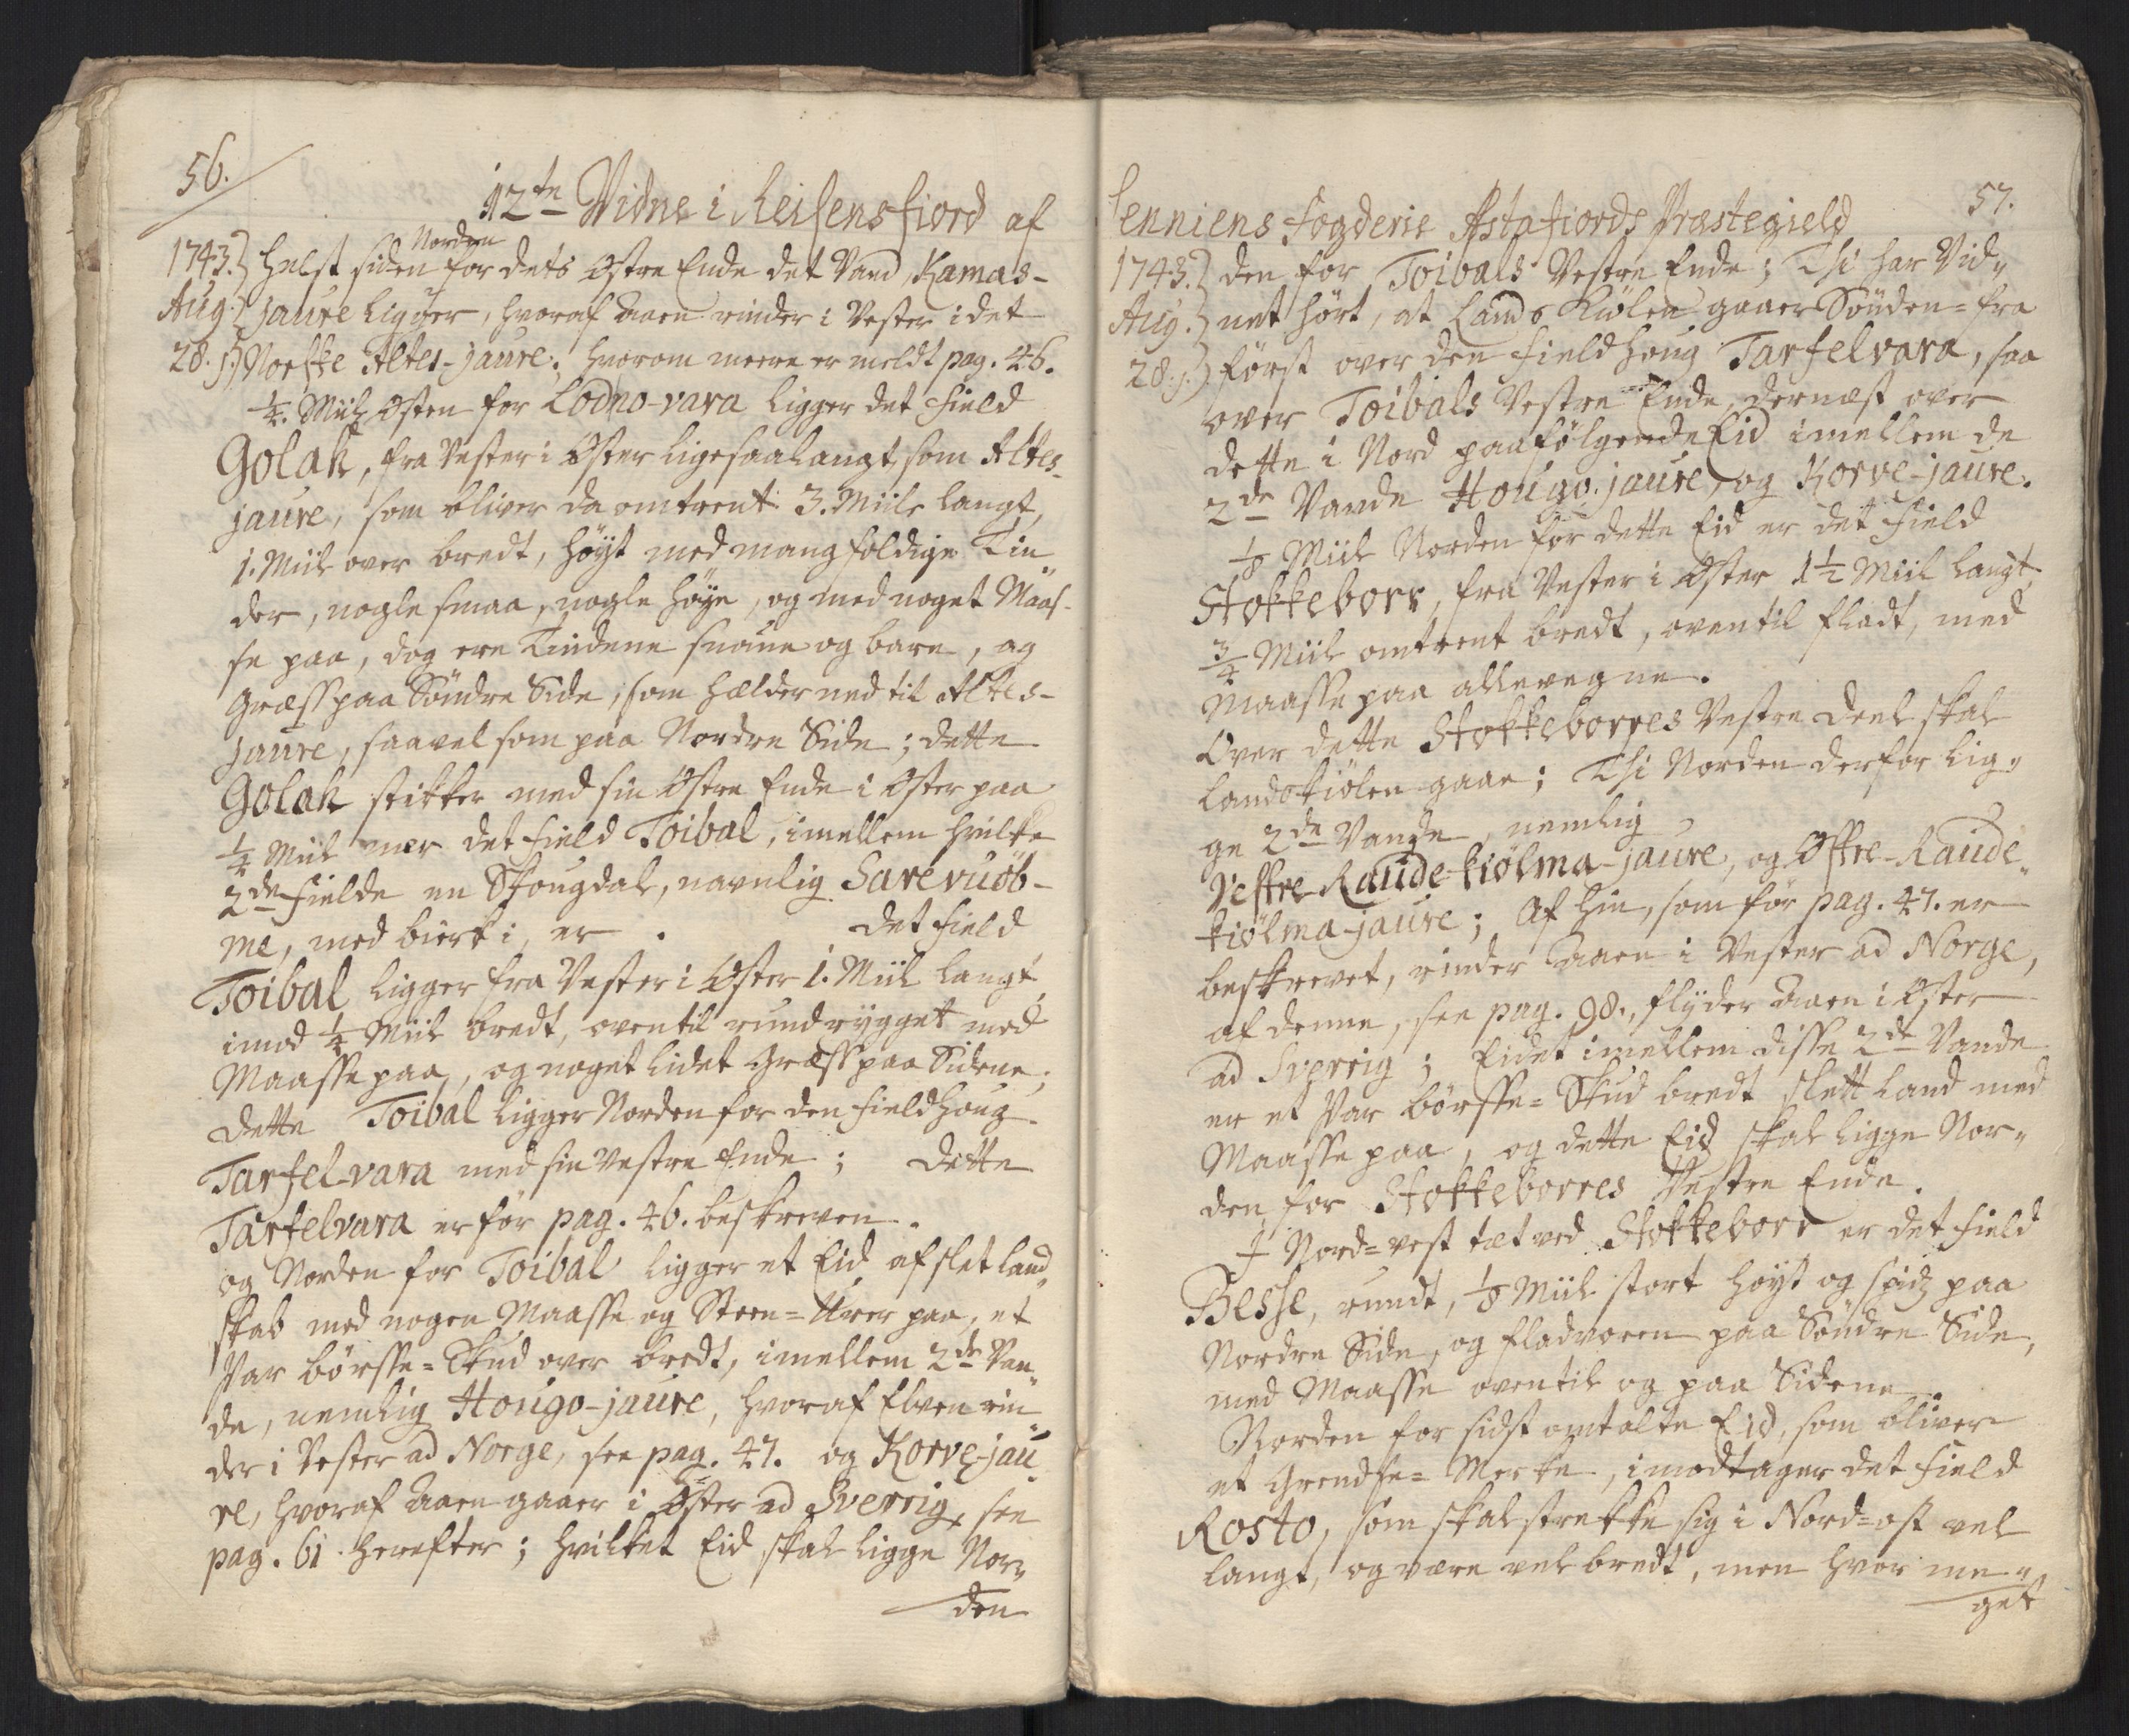 56.
12te Vidne i Reisensfiord af
1743.} helst siden Norden for dets Østre Ende det Vand Kamas-
Aug.} jaure ligger, hvoraf Aaen rinder i Vester i det
28. s.} Norske Altes-jaure; hvorom meere er meldt pag. 46.
1/4. Miil Østen for Lodno-vara ligger det Field
Golak, fra Vester i Øster ligesaa langt, som Altes-
jaure, som bliver da omtrent 3. Miile langt,
1. Miil over bredt, høyt med mangfoldige Tin„
der, nogle smaa, nogle høye, og med noget Maas-
se paa, dog ere Tindene snaue og bare, og
Græss paa Söndre Side, som hælder ned til Altes-
jaure, saavel som paa Nordre Side; dette
Golak stikker med sin Østre Ende i Øster paa
1/4 Miil nær det Field Toibal, imellem hvilke
2de Fielde en Skougdal, navnlig Sarevuöb-
me, med birk i, er. det Field
Toibal ligger fra Vester i Øster 1. Miil langt,
imod 1/4 Miil bredt, oventil rundrygget med
Maasse paa, og noget lidet Græss paa Sidene;
dette Toibal ligger Norden for den Fieldhoug
Tarfel-vara med sin Vestre Ende; dette
Tarfelvara er før pag. 46. beskreven.
og Norden for Toibal ligger et Eid af slet land„
skab med nogen Maasse og Steen-Urer paa, et
Par börsse-Skud over bredt, imellem 2de Van„
de, nemlig Hougo-jaure, hvoraf Elven rin„
der i Vester ad Norge, see pag. 47. og Korve-jau„
re, hvoraf Aaen gaaer i Øster ad Sverrig, see
pag. 61. herefter; hvilket Eid skal ligge Nor„
den
57.
Senniens Fogderie Astafiords Præstegield
1743.} den for Toibals Vestre Ende; Thi har Vid„
Aug.} net hört, at Lands Kiölen gaaer Sönden-fra
28. s.} först over den Fieldhoug Tarfelvara, saa
over Toibals Vestre Ende, dernæst over
dette i Nord paafölgende Eid imellem de
2de Vande Hougo-jaure, og Korve-jaure.
1/8 Miil Norden for dette Eid er det Field
Stokkeborr, fra Vester i Øster 1 1/2 Miil langt,
3/4 Miil omtrent bredt, oventil fladt, med
Maasse paa allevegne.
Over dette Stokkeborres Vestre Deel skal
Landskiölen gaae; Thi Norden derfor lig„
ge 2de Vande, nemlig
Vestre Raude-kiölma-jaure, og Østre-Raude„
kiölma-jaure; Af hin, som för pag. 47. er
beskrevet, rinder Aaen i Vester ad Norge,
af denne, see pag. 98., flyder Aaen i Øster
ad Sverrig; Eidet imellem disse 2de Vande
er et Par börsse-Skud bredt slett Land med
Maasse paa, og dette Eid skal ligge Nor„
den for Stokkeborres Vestre Ende.
I Nord-vest tæt ved Stokkeborr er det Field
Besse, rundt, 1/8 Miil stort høyt og spidz paa
Nordre Side, og fladvoren paa Söndre Side,
med Maasse oventil og paa Sidene.
Norden for sidst omtalte Eid, som bliver
et Grendse-Merke, imodtager det Field
Rosto, som skal strekke sig i Nord-ost vel
langt, og være vel bredt, men hvor me„
get